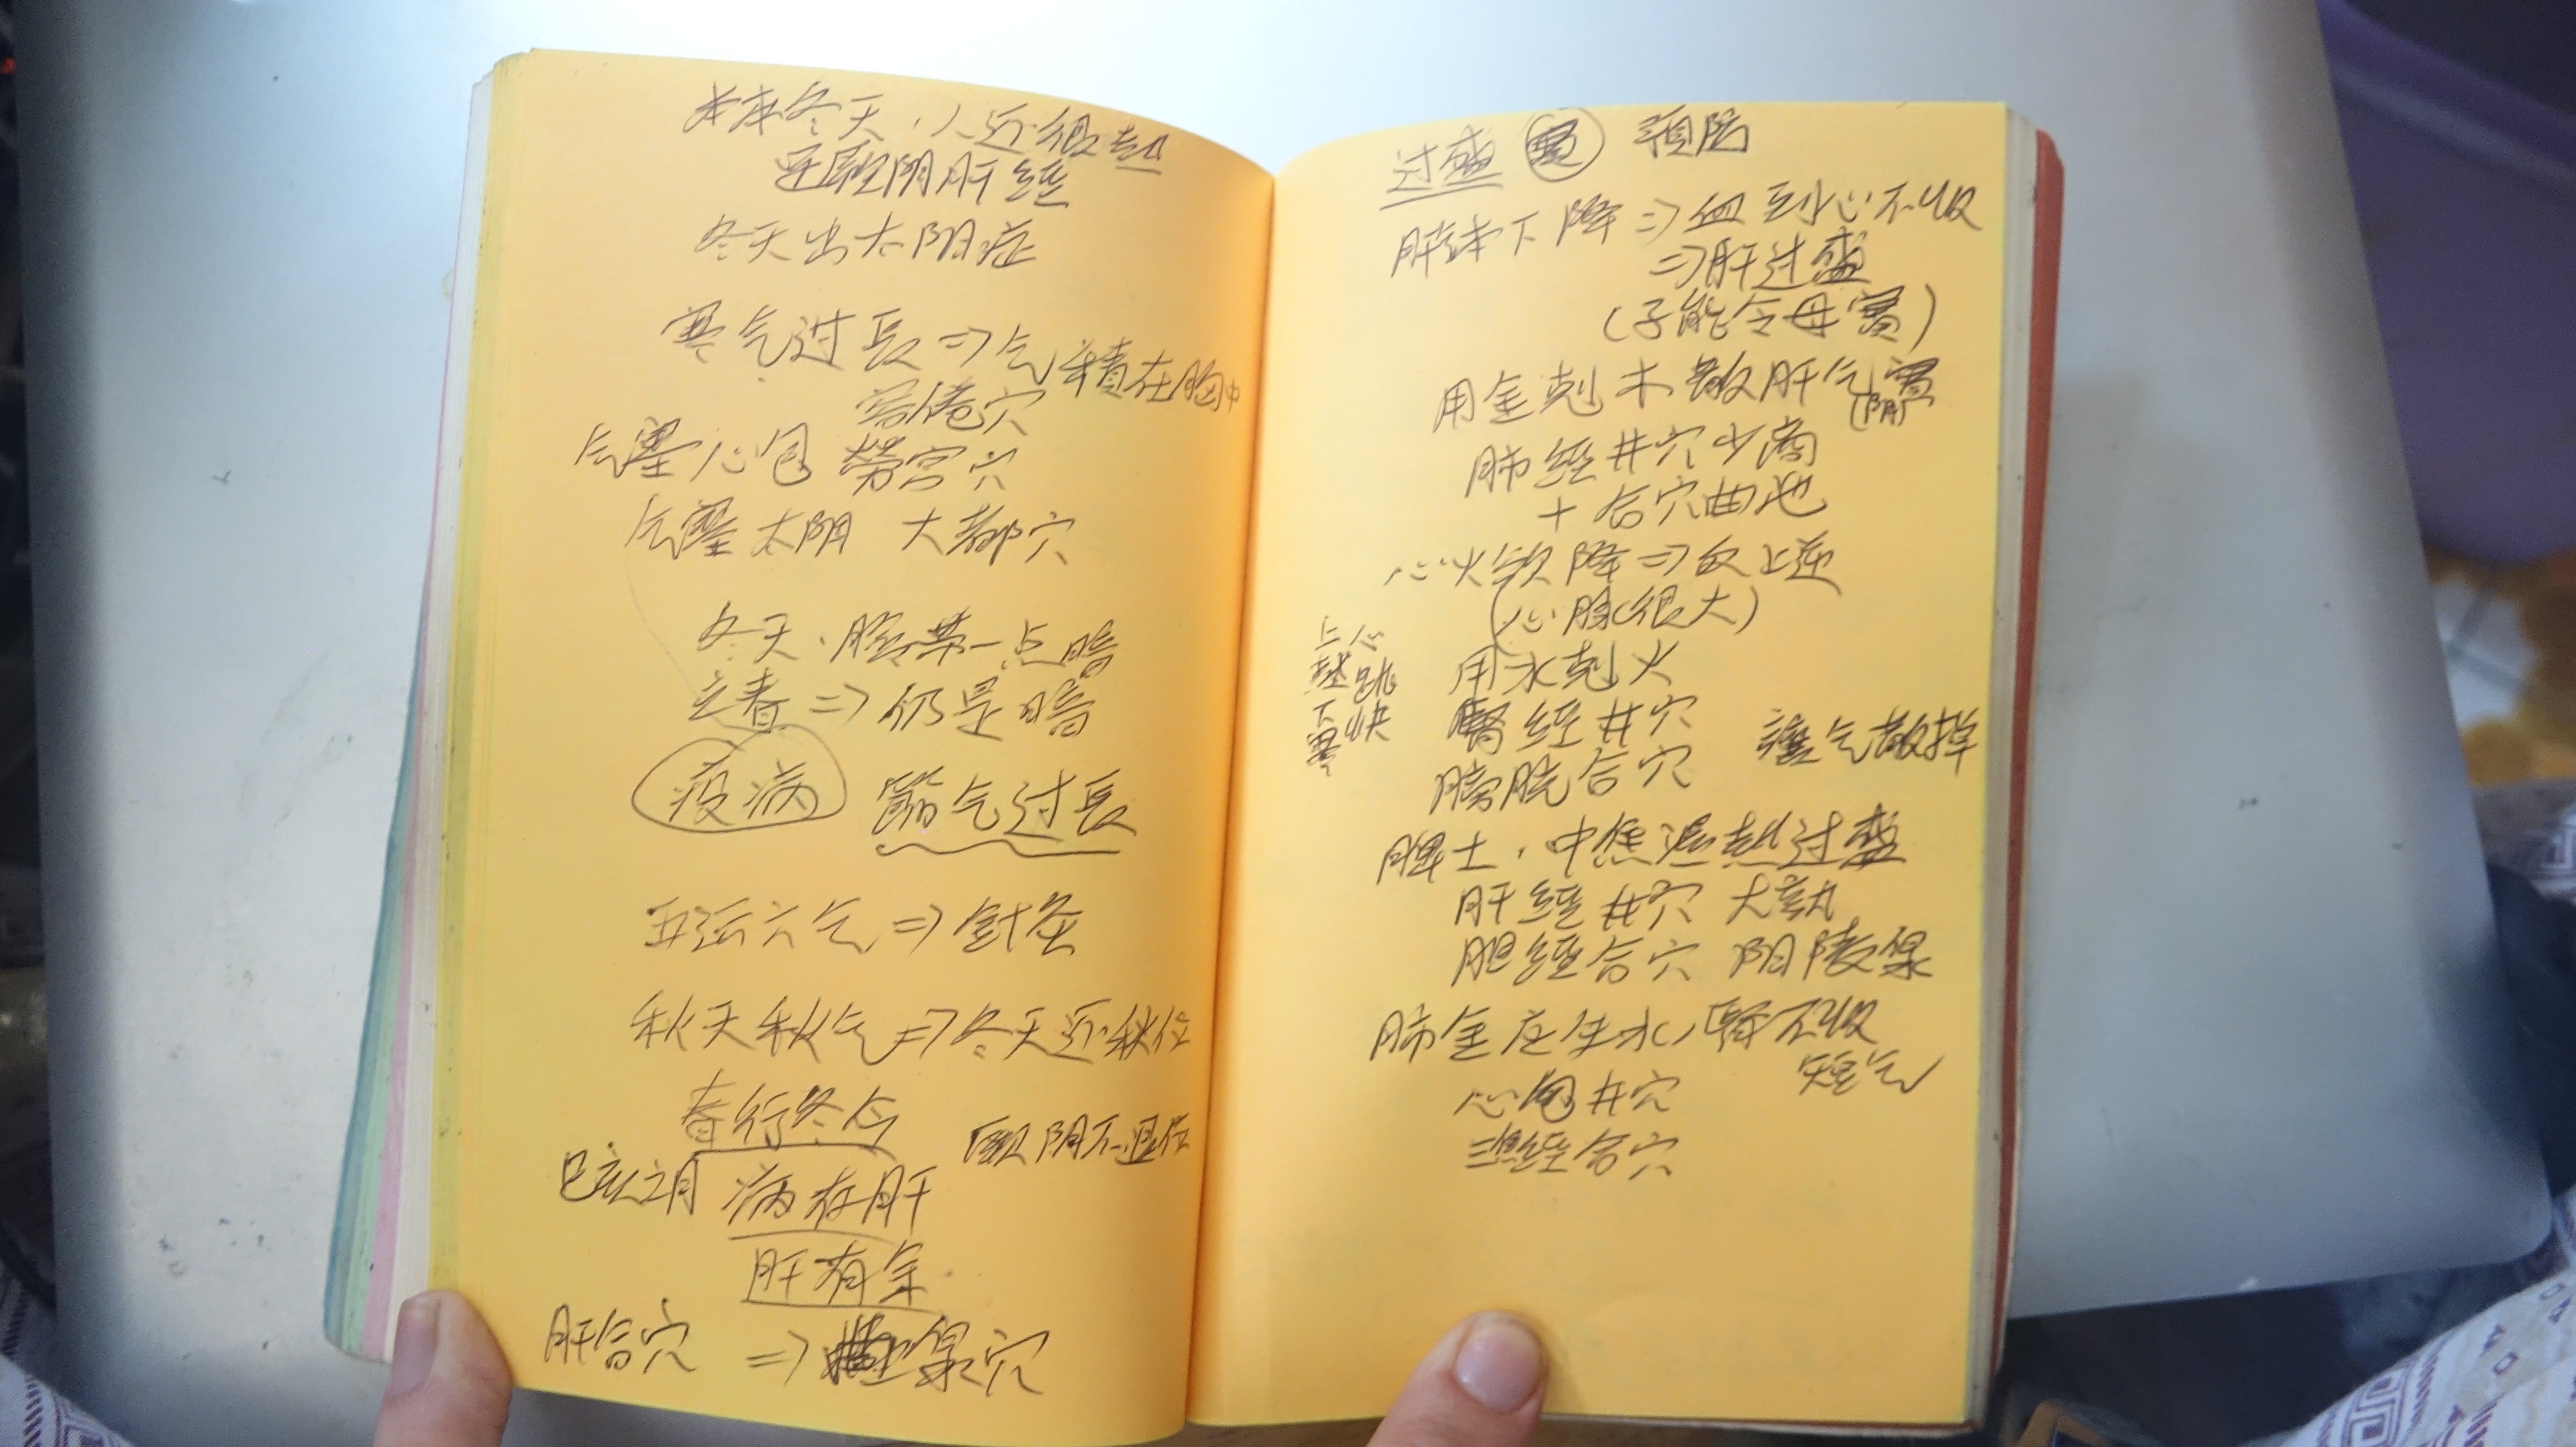 本來冬天,人还很热
足厥阴肝經
冬天出太阴症
寒气过長⇒气積在胸中
气壅心包 勞宮穴
气壅太阴 大都穴
冬天,臉帶一点暗
立春⇒仍是暗
疫病 節气过長
五运六气⇒針灸
秋天秋气⇒冬天还秋位
春行冬令
厥阴不退位
巳亥之月 病在肝
肝有余
肝合穴 ⇒曲泉穴
过盛 實 預防
肺缺下降⇒血到心不收
⇒肝过盛
(子能令母實)
用金剋木 散肝气實
(阴)
肺經井穴少商
+合穴曲池
心火欲降⇒反上逆
(心脉很大)
上热下寒
心跳快
用水剋火
腎經井穴
膀胱合穴
壅气散掉
脾土,中焦濕热过盛
肝經井穴 大敦
胆經合穴 阴陵泉
肺金应生水,降不收
短气
心包井穴
三焦經合穴